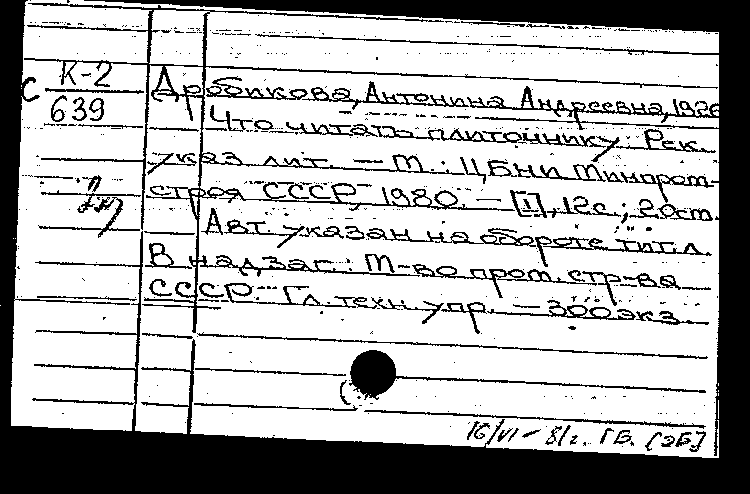 С К-2
639
Дробикова, Антонина Андреевна, 1926
Что читать плиточнику: Рек.
указ. лит. — М.: ЦБНИ Минпром-
строя СССР, 1980. — [1], 12с.; 20см.
Авт. указан на обороте тит. л.
В надзаг.: М-во пром. стр-ва
СССР. Гл. техн. упр. — 300 экз.
16/VI - 81г. ГБ. [ЭБ]